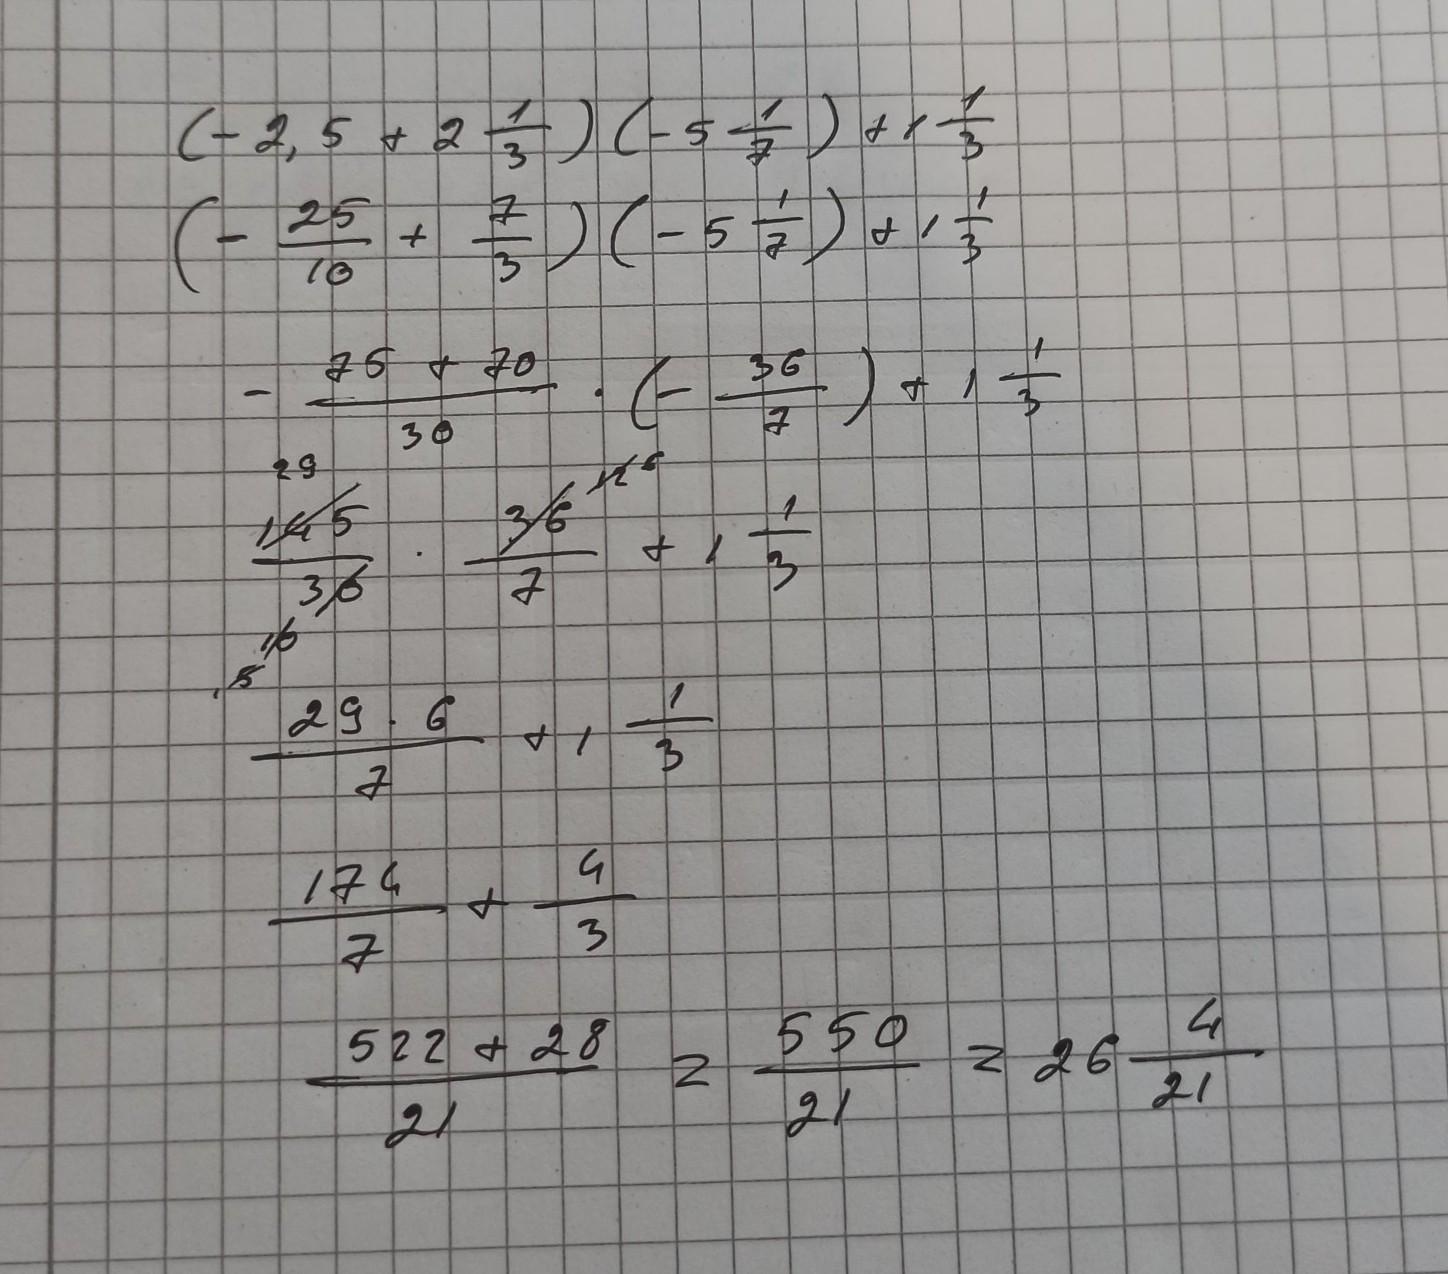 (-2,5 + 2 1/3)(-5 1/7) + 1 1/3
(- 25/10 + 7/3)(-5 1/7) + 1 1/3
- (75 + 70)/30 · (- 36/7) + 1 1/3
29 12 6
145/30 · 36/7 + 1 1/3
10
5
(29 · 6)/7 + 1 1/3
174/7 + 4/3
(522 + 28)/21 = 550/21 = 26 4/21